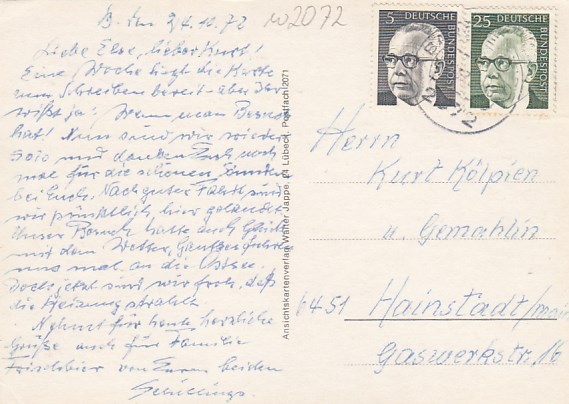 B. den 24.10.72
w2072
Liebe Else, lieber Kurt!
Eine Woche liegt die Karte
zum Schreiben bereit - aber Ihr
wißt ja: Wenn man Besuch
hat! Nun sind wir wieder
solo und danken Euch noch
mal für die schönen Stunden
bei Euch. Nach guter Fahrt sind
wir pünktlich hier gelandet.
Unser Besuch hatte auch Glück
mit dem Wetter,
uns mal an die Ostsee.
Doch jetzt sind wir froh, daß
die Heizung strahlt.
Nehmt für heute herzliche
Grüße auch für Familie
Frischbier von Euren beiden
Schillings.
Ansichtskartenverlag Walter Jappe, 24 Lübeck, Postfach 2071
5 DEUTSCHE BUNDESPOST
25 DEUTSCHE BUNDESPOST
Herrn
Kurt Kölpien
u. Gemahlin
6451 Hainstadt/Main
Gaswerkstr. 16